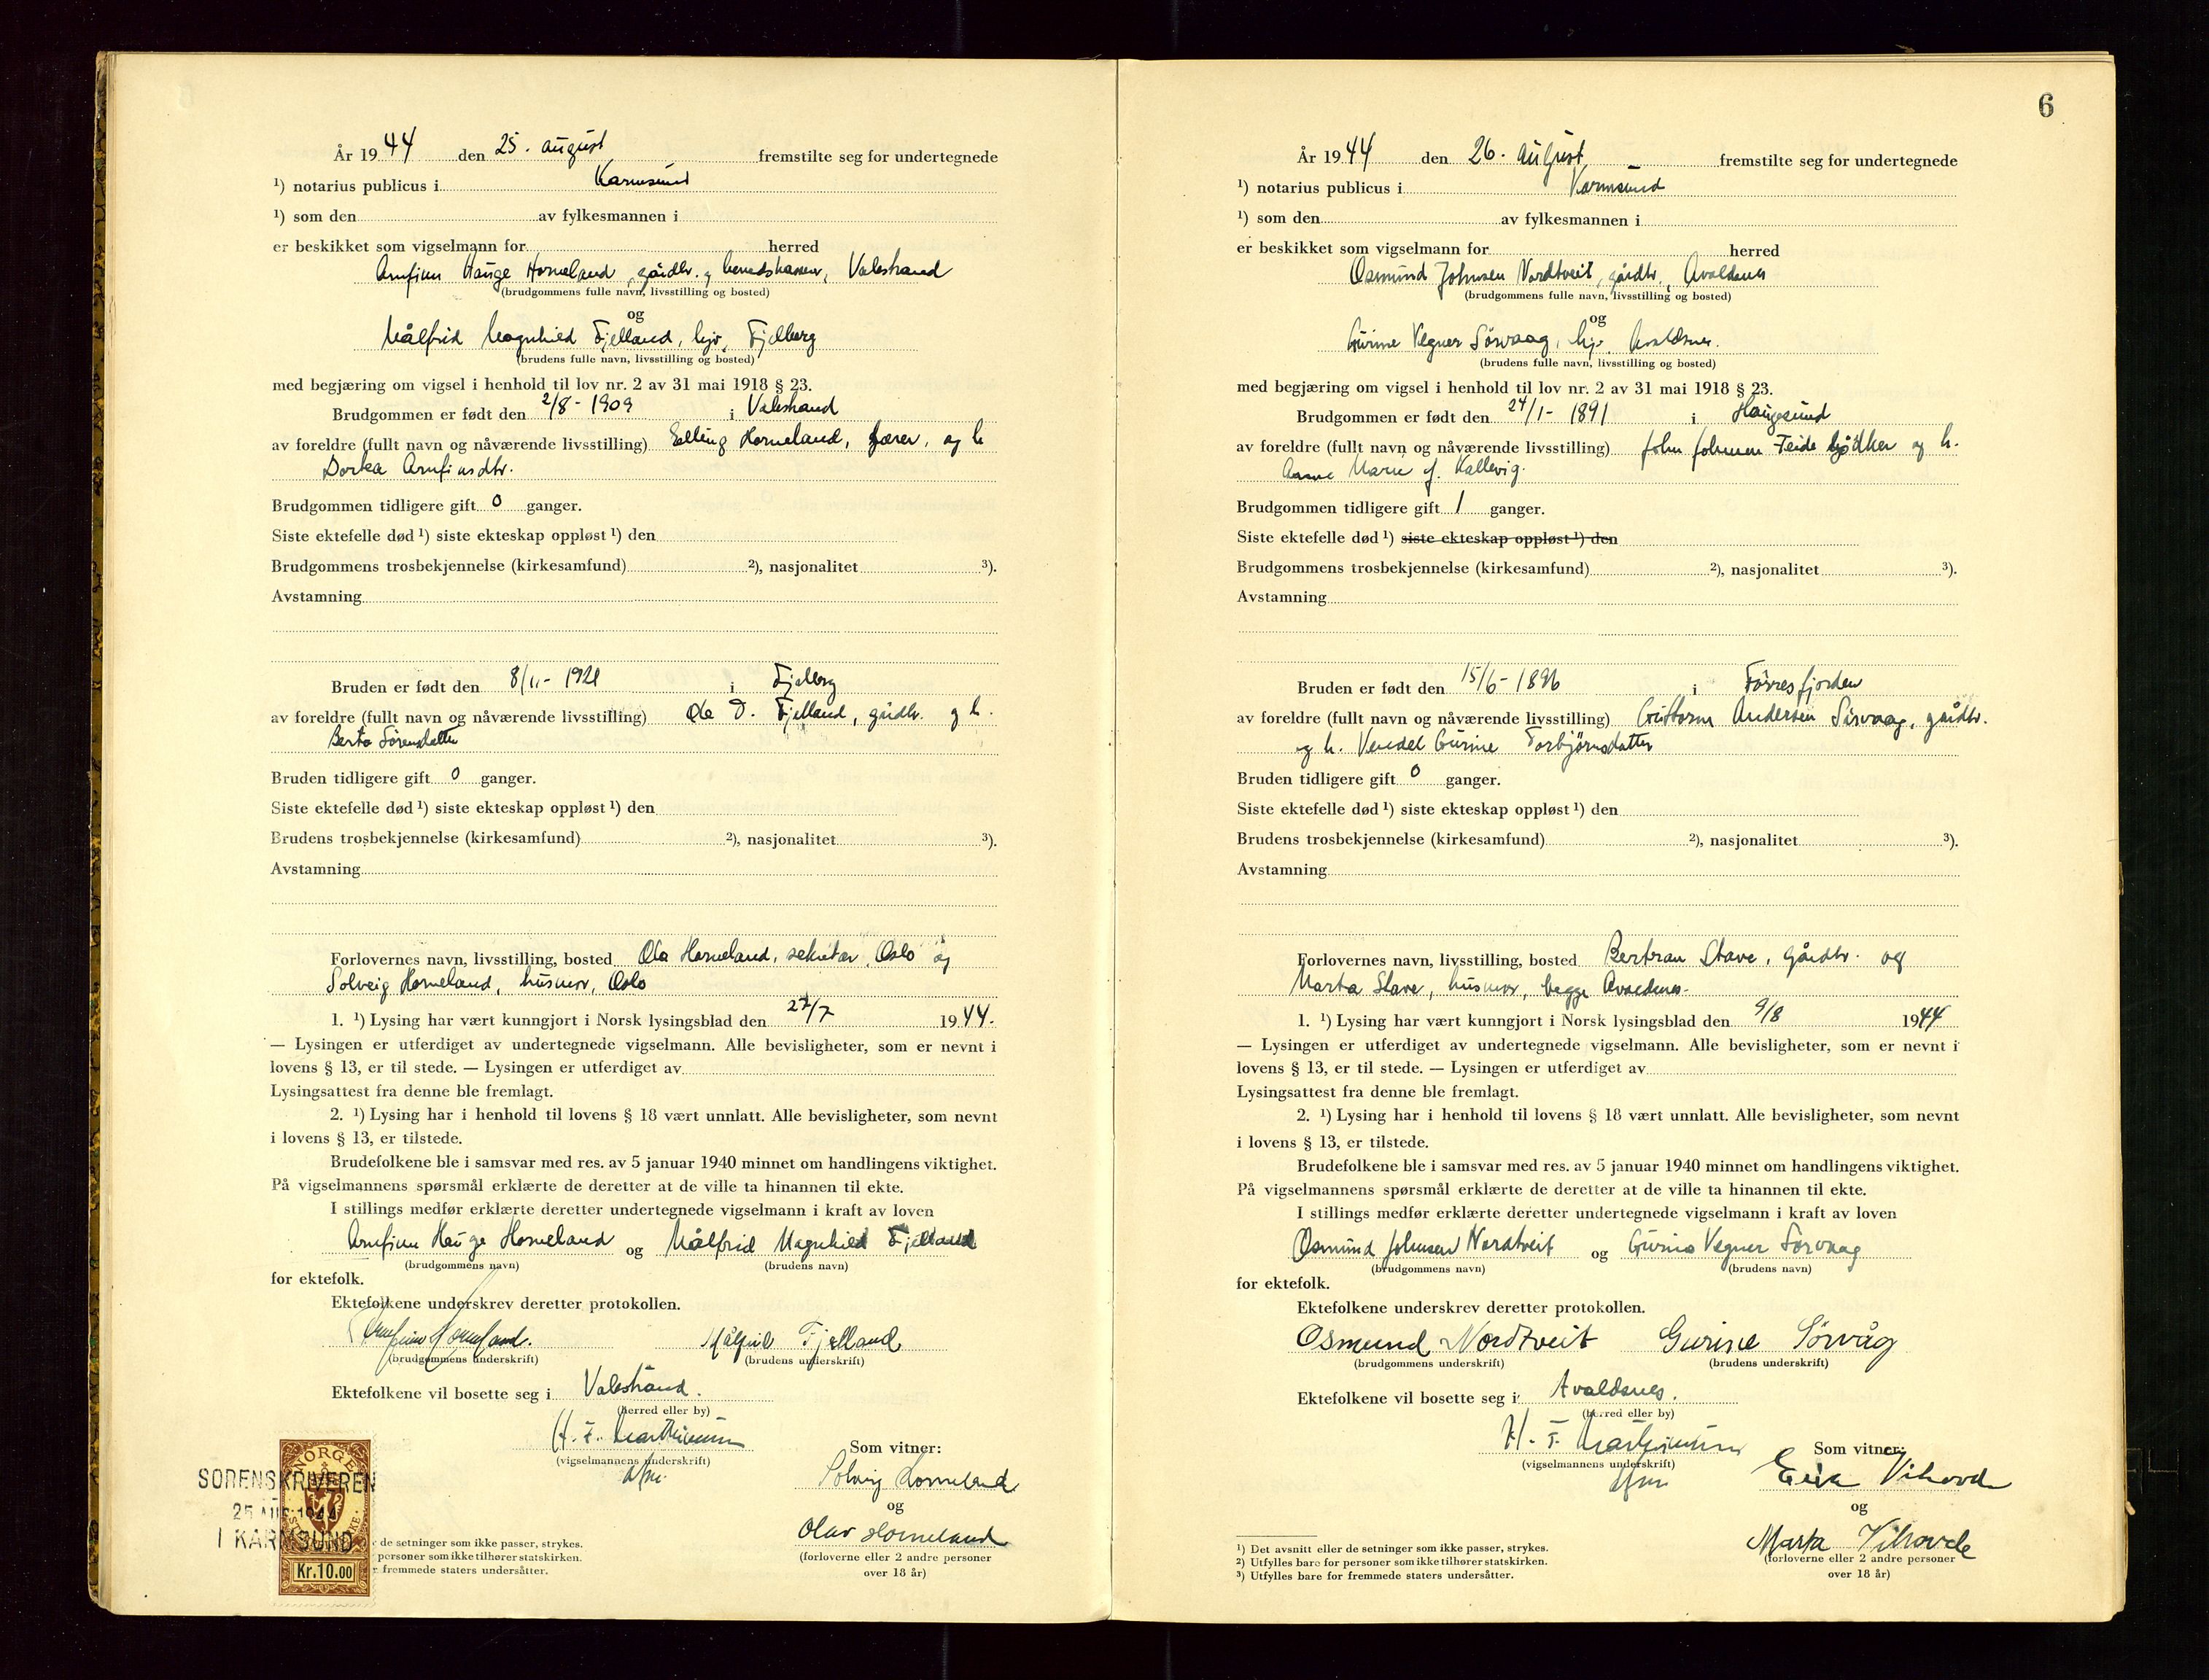 År 1944 den 25. august fremstilte seg for undertegnede
¹) notarius publicus i Karmsund
¹) som den av fylkesmannen i
er beskikket som vigselmann for herred
Arnfinn Hauge Horneland, gårdbr. og herredskasser, Valestrand
(brudgommens fulle navn, livsstilling og bosted)
og
Målfrid Magnhild Fjelland, hjv, Fjelberg
(brudens fulle navn, livsstilling og bosted)
med begjæring om vigsel i henhold til lov nr. 2 av 31 mai 1918 § 23.
Brudgommen er født den 2/8 - 1909 i Valestrand
av foreldre (fullt navn og nåværende livsstilling) Elling Horneland, lærer, og h
Dorka Arnfinsdtr.
Brudgommen tidligere gift 0 ganger.
Siste ektefelle død ¹) siste ekteskap oppløst ¹) den
Brudgommens trosbekjennelse (kirkesamfund) ²), nasjonalitet ³).
Avstamning
Bruden er født den 8/11 - 1921 i Fjelberg
av foreldre (fullt navn og nåværende livsstilling) Ole D. Fjelland, gårdbr. og h.
Berta Sørensdatter
Bruden tidligere gift 0 ganger.
Siste ektefelle død ¹) siste ekteskap oppløst ¹) den
Brudens trosbekjennelse (kirkesamfund) ²), nasjonalitet ³).
Avstamning
Forlovernes navn, livsstilling, bosted Ola Horneland, sekretær, Oslo og
Solveig Horneland, husmor, Oslo
1. ¹) Lysing har vært kunngjort i Norsk lysingsblad den 27/7 1944.
— Lysingen er utferdiget av undertegnede vigselmann. Alle bevisligheter, som er nevnt i
lovens § 13, er til stede. — Lysingen er utferdiget av
Lysingsattest fra denne ble fremlagt.
2. ¹) Lysing har i henhold til lovens § 18 vært unnlatt. Alle bevisligheter, som nevnt
i lovens § 13, er tilstede.
Brudefolkene ble i samsvar med res. av 5 januar 1940 minnet om handlingens viktighet.
På vigselmannens spørsmål erklærte de deretter at de ville ta hinannen til ekte.
I stillings medfør erklærte deretter undertegnede vigselmann i kraft av loven
Arnfinn Hauge Horneland og Målfrid Magnhild Fjelland
(brudgommens navn) (brudens navn)
for ektefolk.
Ektefolkene underskrev deretter protokollen.
Arnfinn Horneland. Målfrid Fjelland
(brudgommens underskrift) (brudens underskrift)
Ektefolkene vil bosette seg i Valestrand.
(herred eller by)
H. F.
(vigselmannens underskrift)
Som vitner:
Solveig Horneland
og
Olav Horneland
(forloverne eller 2 andre personer
over 18 år)
NORGE
SORENSKRIVEREN
25 AUG 1944
I KARMSUND
Kr.10.00
de setninger som ikke passer, strykes.
personer som ikke tilhører statskirken.
r fremmede staters undersåtter.
6
År 1944 den 26. august fremstilte seg for undertegnede
¹) notarius publicus i Karmsund
¹) som den av fylkesmannen i
er beskikket som vigselmann for herred
Osmund Johnsen Nordtveit, gårdbr., Avaldsnes
(brudgommens fulle navn, livsstilling og bosted)
og
Gurine Vegner Sørvaag, hjv. Avaldsnes.
(brudens fulle navn, livsstilling og bosted)
med begjæring om vigsel i henhold til lov nr. 2 av 31 mai 1918 § 23.
Brudgommen er født den 24/1 - 1891 i Haugesund
av foreldre (fullt navn og nåværende livsstilling) John Johnsen og h.
Anne Marie f. Kallevig.
Brudgommen tidligere gift 1 ganger.
Siste ektefelle død ¹) siste ekteskap oppløst ¹) den
Brudgommens trosbekjennelse (kirkesamfund) ²), nasjonalitet ³).
Avstamning
Bruden er født den 15/6 - 1896 i Førresfjorden
av foreldre (fullt navn og nåværende livsstilling) Guttorm Andersen Sørvaag, gårdbr.
og h. Vendel Gurine Torbjørnsdatter
Bruden tidligere gift 0 ganger.
Siste ektefelle død ¹) siste ekteskap oppløst ¹) den
Brudens trosbekjennelse (kirkesamfund) ²), nasjonalitet ³).
Avstamning
Forlovernes navn, livsstilling, bosted Bertran Stave, gårdbr. og
Marta Stave, husmor, begge Avaldsnes.
1. ¹) Lysing har vært kunngjort i Norsk lysingsblad den 9/8 1944
— Lysingen er utferdiget av undertegnede vigselmann. Alle bevisligheter, som er nevnt i
lovens § 13, er til stede. — Lysingen er utferdiget av
Lysingsattest fra denne ble fremlagt.
2. ¹) Lysing har i henhold til lovens § 18 vært unnlatt. Alle bevisligheter, som nevnt
i lovens § 13, er tilstede.
Brudefolkene ble i samsvar med res. av 5 januar 1940 minnet om handlingens viktighet.
På vigselmannens spørsmål erklærte de deretter at de ville ta hinannen til ekte.
I stillings medfør erklærte deretter undertegnede vigselmann i kraft av loven
Osmund Johnsen Nordtveit og Gurine Vegner Sørvaag
(brudgommens navn) (brudens navn)
for ektefolk.
Ektefolkene underskrev deretter protokollen.
Osmund Nordtveit Gurine Sørvåg
(brudgommens underskrift) (brudens underskrift)
Ektefolkene vil bosette seg i Avaldsnes.
(herred eller by)
H. F.
(vigselmannens underskrift)
Som vitner:
Vihovde
og
Marta Vihovde
(forloverne eller 2 andre personer
over 18 år)
¹) Det avsnitt eller de setninger som ikke passer, strykes.
²) Utfylles bare for personer som ikke tilhører statskirken.
³) Utfylles bare for fremmede staters undersåtter.